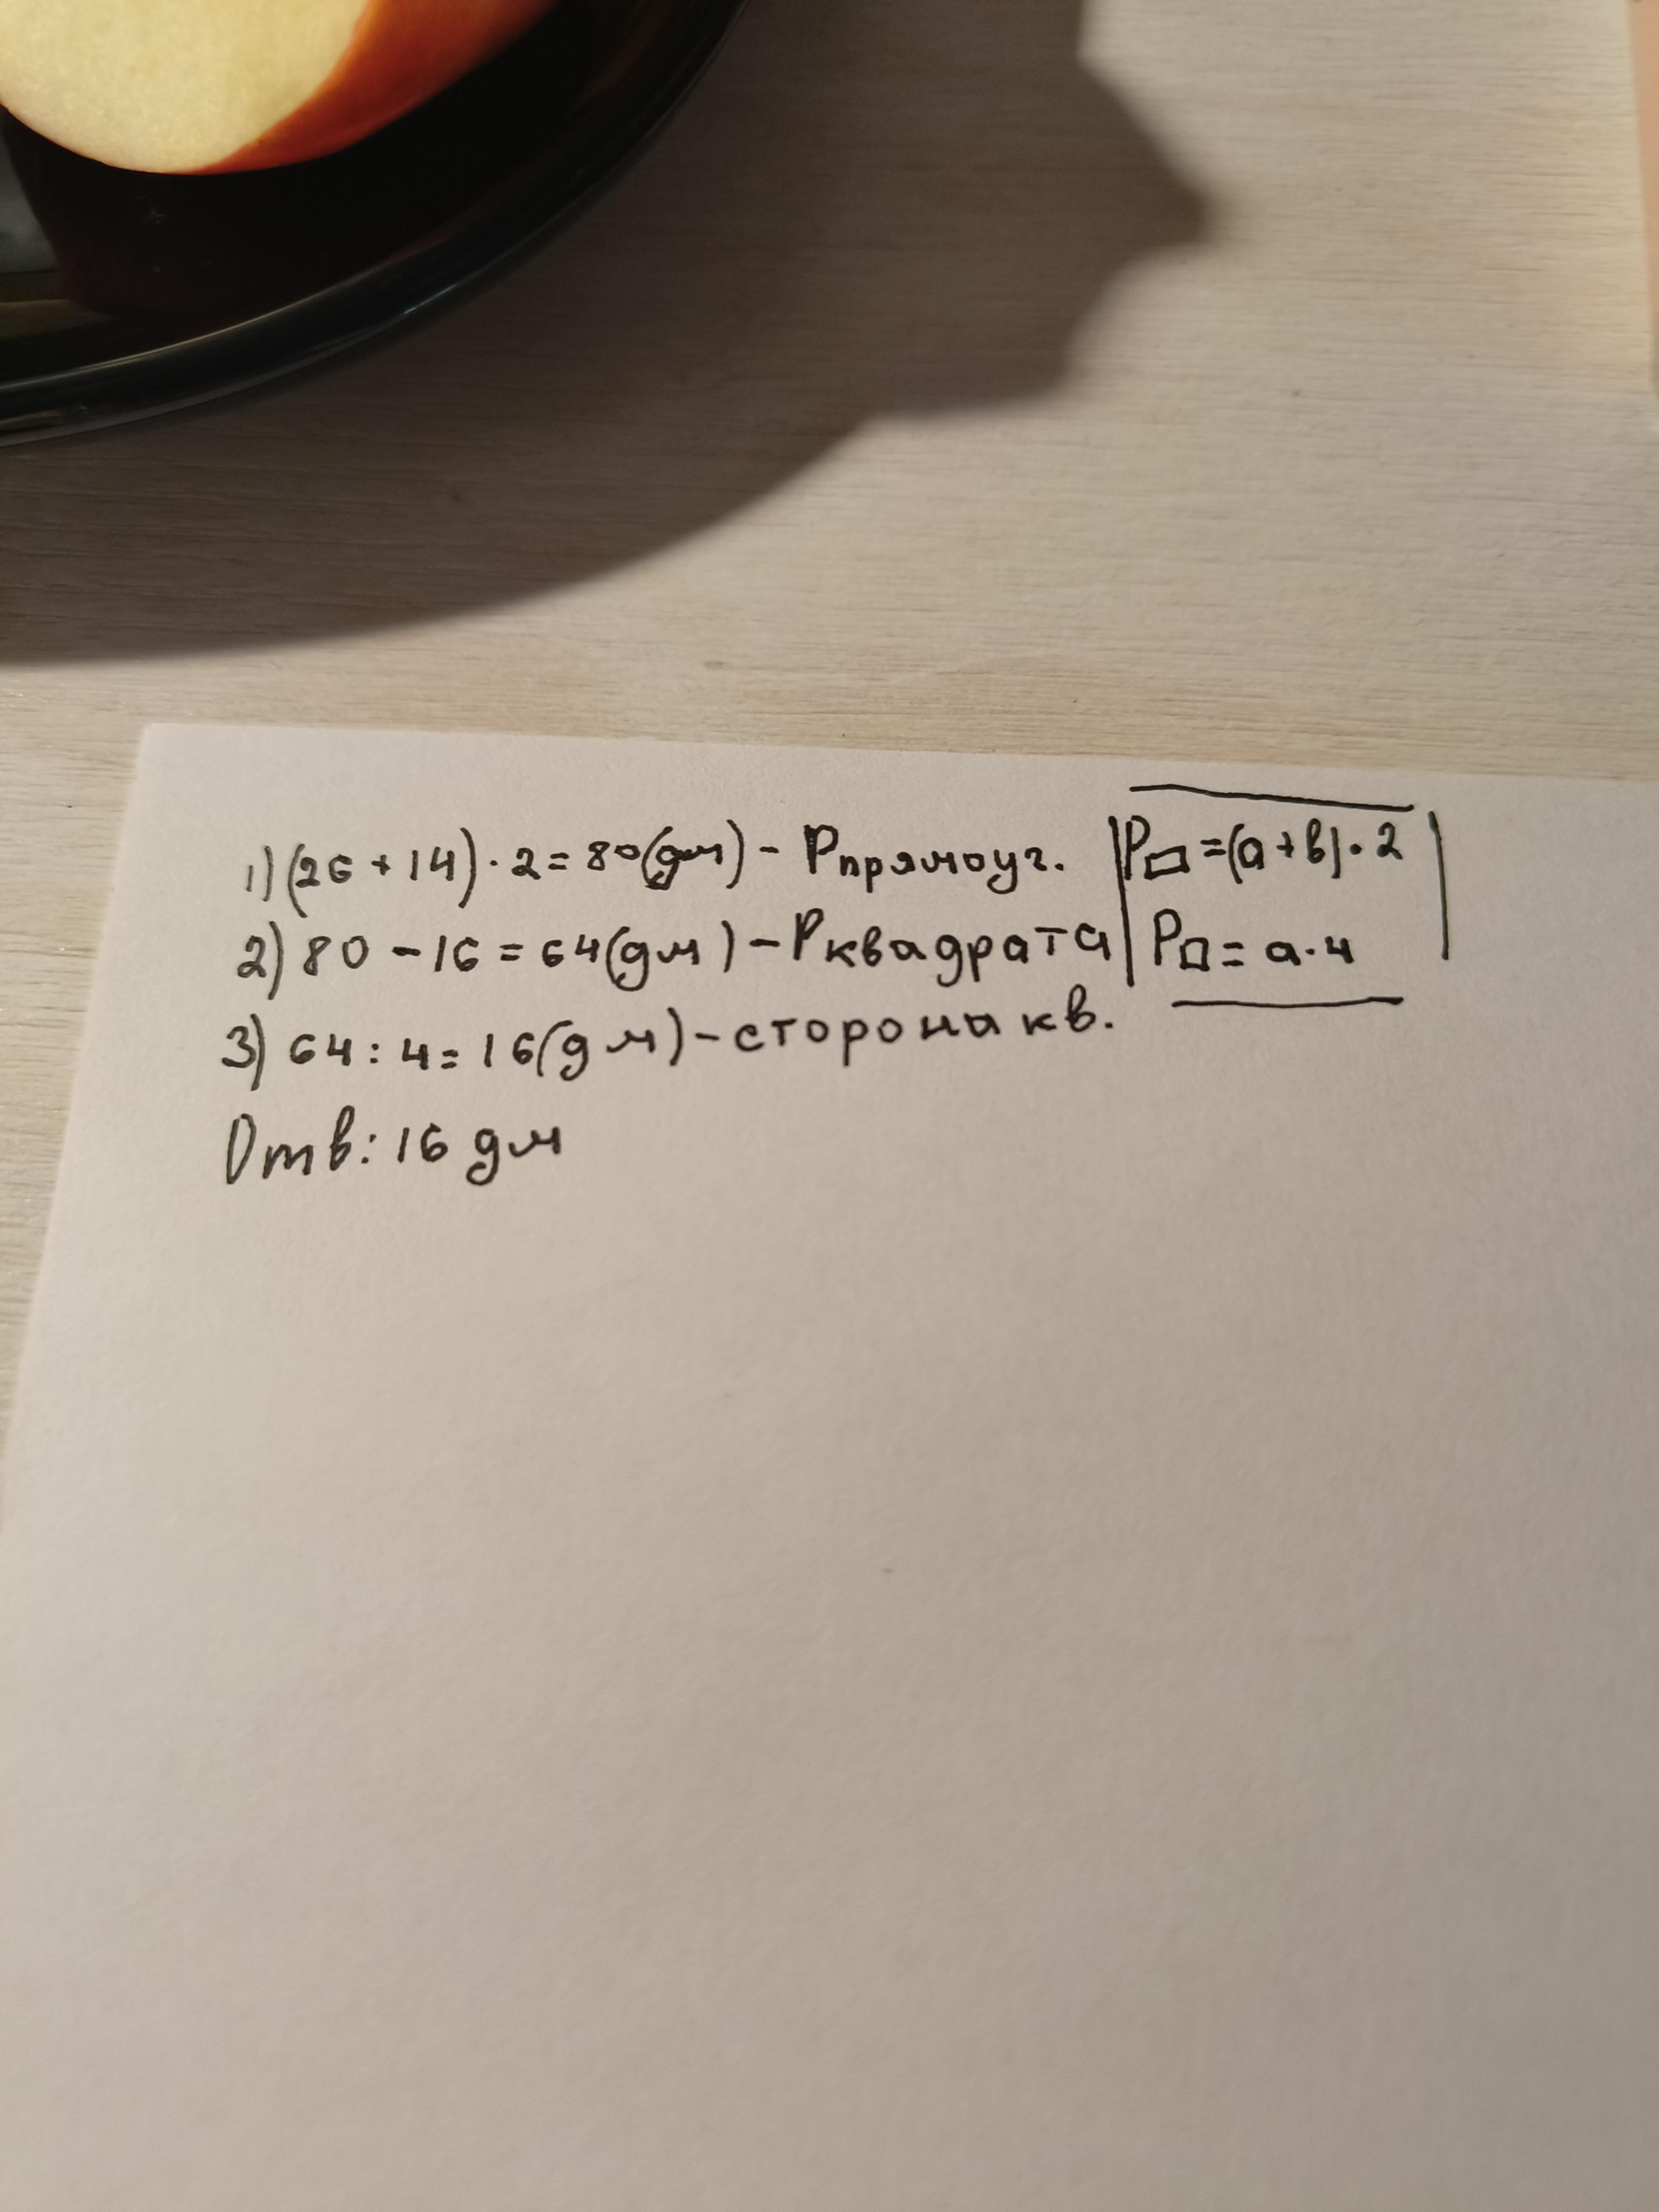 1) (26 + 14) · 2 = 80 (дм) - Pпрямоуг.
2) 80 - 16 = 64 (дм) - Pквадрата
3) 64 : 4 = 16 (дм) - стороны кв.
Отв: 16 дм
P▭ = (a + b) · 2
P□ = a · 4